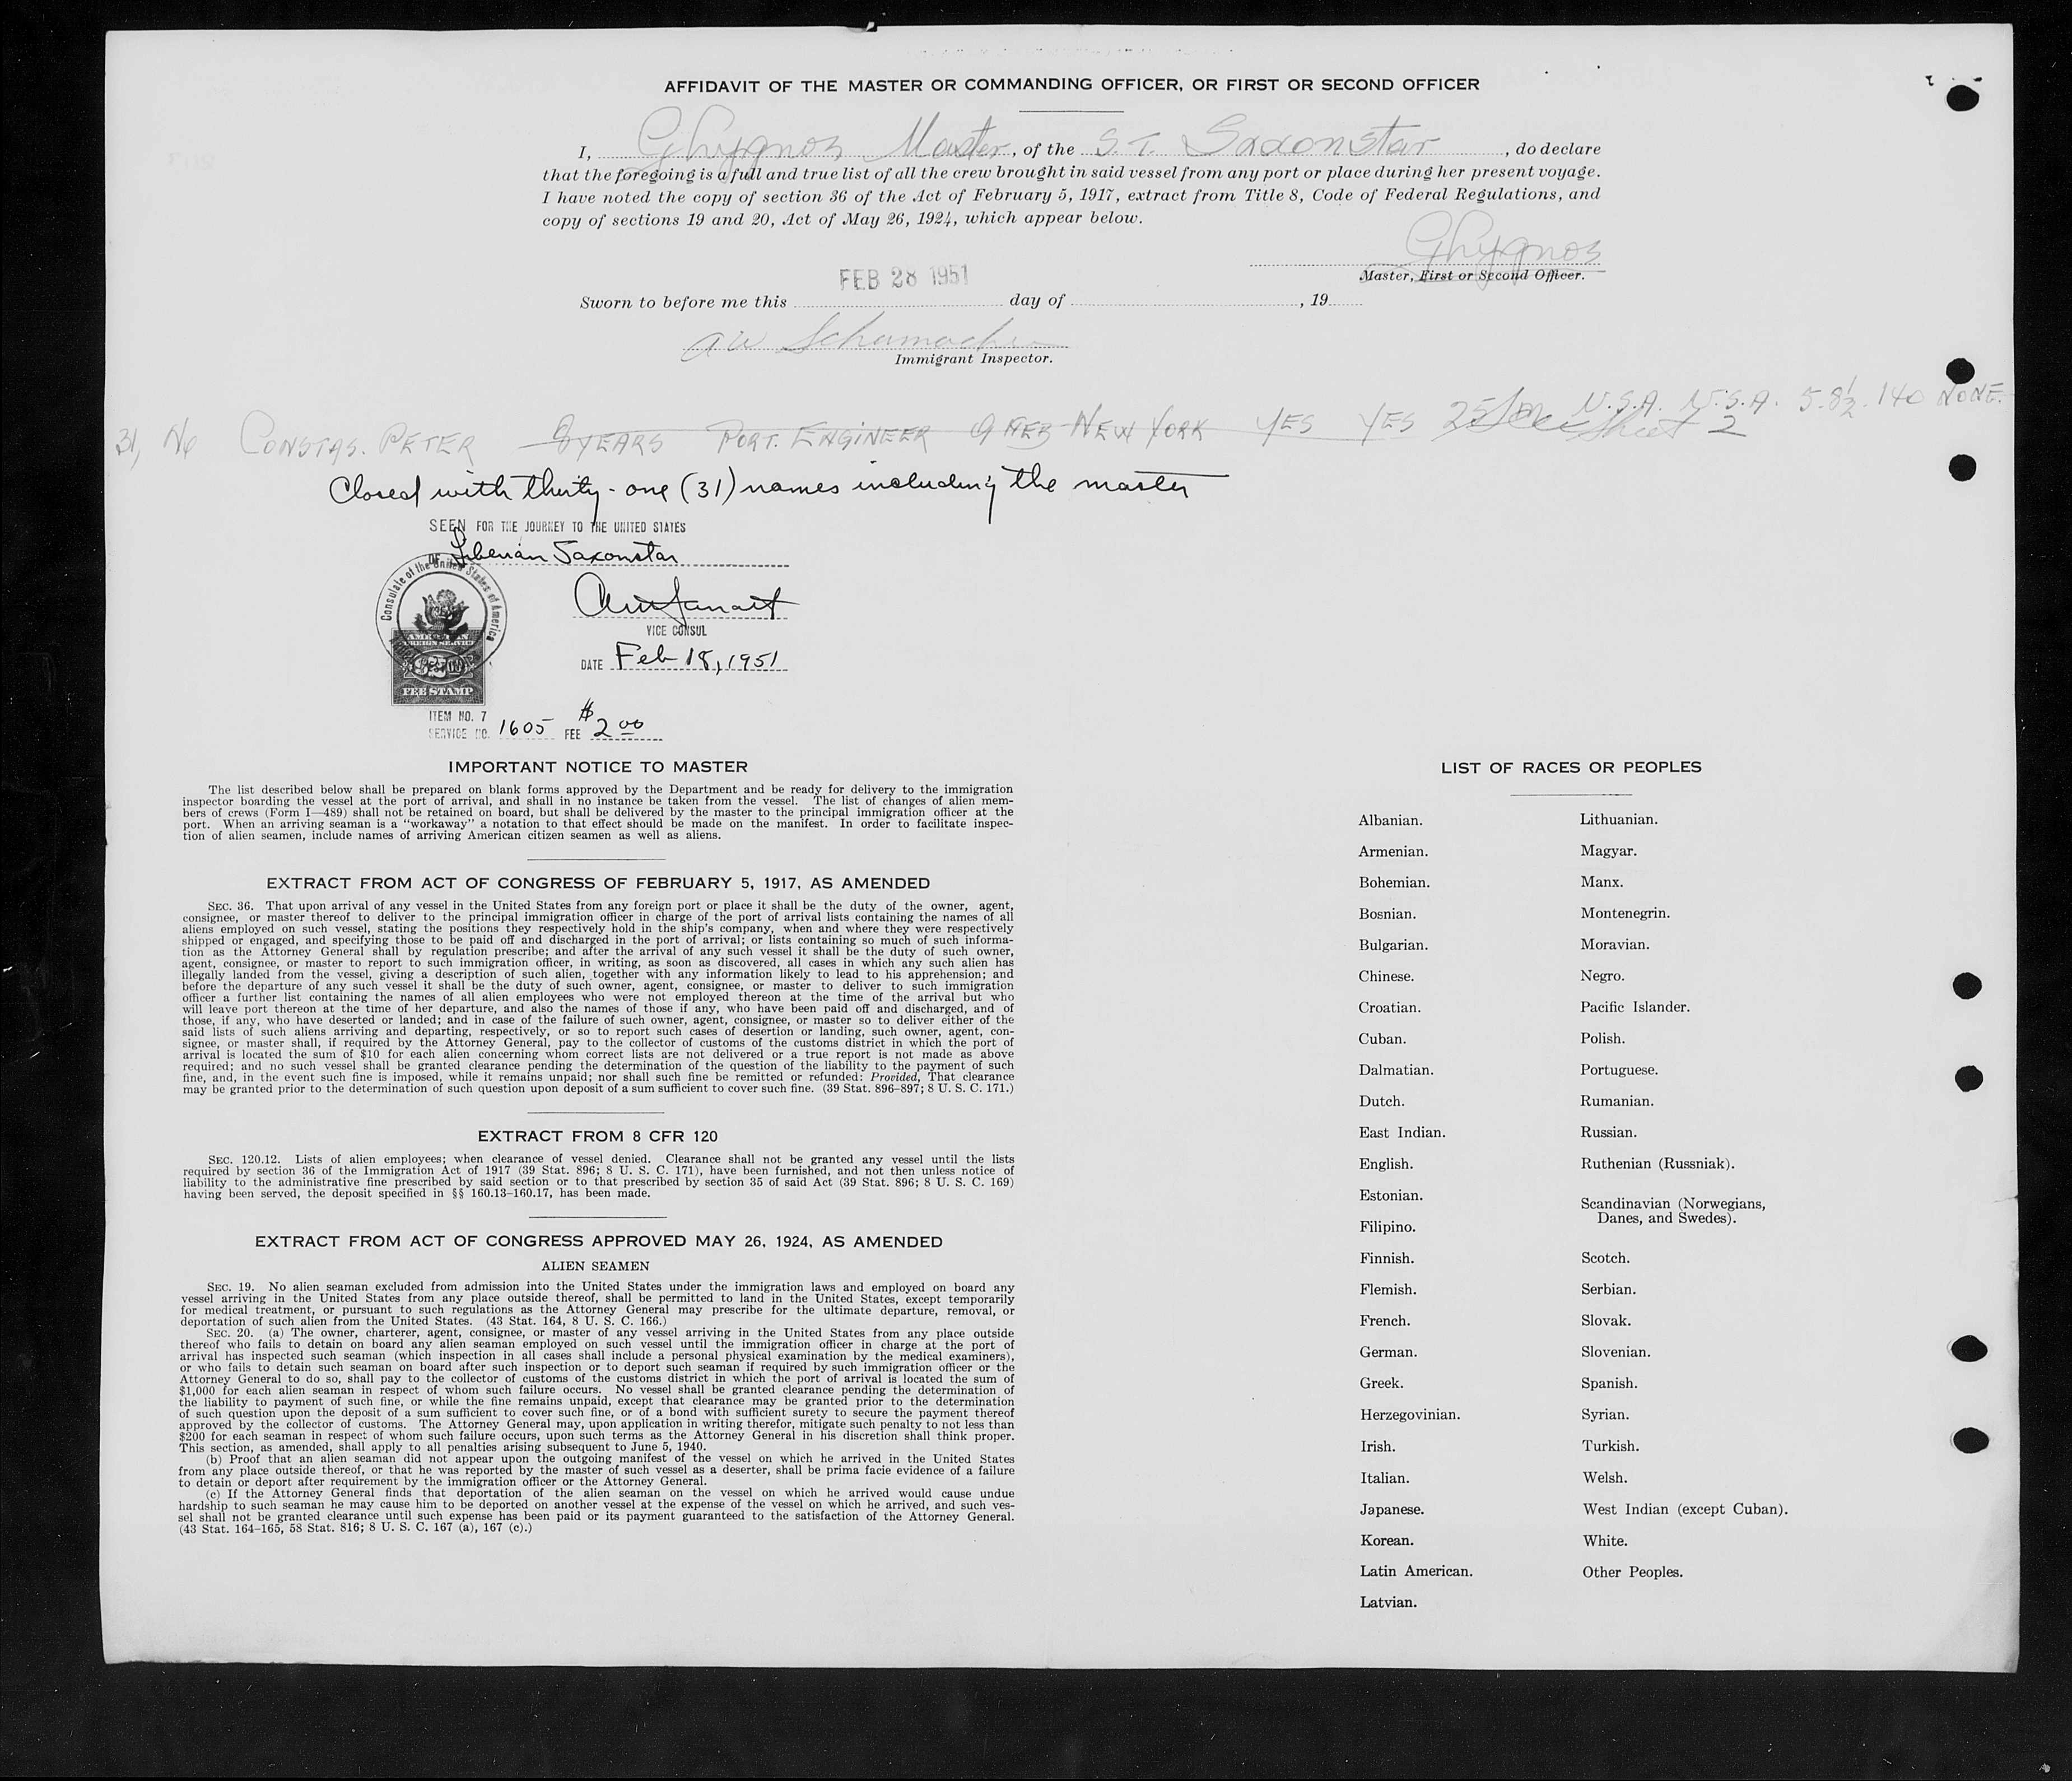 AFFIDAVIT OF THE MASTER OR COMMANDING OFFICER, OR FIRST OR SECOND OFFICER
I, Ghygnos Master, of the S.T. Saxonstar, do declare
that the foregoing is a full and true list of all the crew brought in said vessel from any port or place during her present voyage.
I have noted the copy of section 36 of the Act of February 5, 1917, extract from Title 8, Code of Federal Regulations, and
copy of sections 19 and 20, Act of May 26, 1924, which appear below.
Ghygnos
Master, First or Second Officer.
FEB 28 1951
Sworn to before me this day of , 19
AW Schumacher
Immigrant Inspector.
31, No CONSTAS. PETER 8 YEARS PORT. ENGINEER 9 FEB NEW YORK YES YES 25 U.S.A. U.S.A. 5.8½. 140 NONE.
See Sheet 2
Closed with thirty-one (31) names including the master
SEEN FOR THE JOURNEY TO THE UNITED STATES
OF Liberian Saxonstar
Consulate of the United States of America
VICE CONSUL
DATE Feb 18, 1951
AMERICAN
FOREIGN SERVICE
FEE STAMP
ITEM NO. 7
SERVICE NO. 1605 FEE $2 00
IMPORTANT NOTICE TO MASTER
The list described below shall be prepared on blank forms approved by the Department and be ready for delivery to the immigration
inspector boarding the vessel at the port of arrival, and shall in no instance be taken from the vessel. The list of changes of alien mem-
bers of crews (Form I—489) shall not be retained on board, but shall be delivered by the master to the principal immigration officer at the
port. When an arriving seaman is a "workaway" a notation to that effect should be made on the manifest. In order to facilitate inspec-
tion of alien seamen, include names of arriving American citizen seamen as well as aliens.
EXTRACT FROM ACT OF CONGRESS OF FEBRUARY 5, 1917, AS AMENDED
SEC. 36. That upon arrival of any vessel in the United States from any foreign port or place it shall be the duty of the owner, agent,
consignee, or master thereof to deliver to the principal immigration officer in charge of the port of arrival lists containing the names of all
aliens employed on such vessel, stating the positions they respectively hold in the ship's company, when and where they were respectively
shipped or engaged, and specifying those to be paid off and discharged in the port of arrival; or lists containing so much of such informa-
tion as the Attorney General shall by regulation prescribe; and after the arrival of any such vessel it shall be the duty of such owner,
agent, consignee, or master to report to such immigration officer, in writing, as soon as discovered, all cases in which any such alien has
illegally landed from the vessel, giving a description of such alien, together with any information likely to lead to his apprehension; and
before the departure of any such vessel it shall be the duty of such owner, agent, consignee, or master to deliver to such immigration
officer a further list containing the names of all alien employees who were not employed thereon at the time of the arrival but who
will leave port thereon at the time of her departure, and also the names of those if any, who have been paid off and discharged, and of
those, if any, who have deserted or landed; and in case of the failure of such owner, agent, consignee, or master so to deliver either of the
said lists of such aliens arriving and departing, respectively, or so to report such cases of desertion or landing, such owner, agent, con-
signee, or master shall, if required by the Attorney General, pay to the collector of customs of the customs district in which the port of
arrival is located the sum of $10 for each alien concerning whom correct lists are not delivered or a true report is not made as above
required; and no such vessel shall be granted clearance pending the determination of the question of the liability to the payment of such
fine, and, in the event such fine is imposed, while it remains unpaid; nor shall such fine be remitted or refunded: Provided, That clearance
may be granted prior to the determination of such question upon deposit of a sum sufficient to cover such fine. (39 Stat. 896–897; 8 U. S. C. 171.)
EXTRACT FROM 8 CFR 120
SEC. 120.12. Lists of alien employees; when clearance of vessel denied. Clearance shall not be granted any vessel until the lists
required by section 36 of the Immigration Act of 1917 (39 Stat. 896; 8 U. S. C. 171), have been furnished, and not then unless notice of
liability to the administrative fine prescribed by said section or to that prescribed by section 35 of said Act (39 Stat. 896; 8 U. S. C. 169)
having been served, the deposit specified in §§ 160.13–160.17, has been made.
EXTRACT FROM ACT OF CONGRESS APPROVED MAY 26, 1924, AS AMENDED
ALIEN SEAMEN
SEC. 19. No alien seaman excluded from admission into the United States under the immigration laws and employed on board any
vessel arriving in the United States from any place outside thereof, shall be permitted to land in the United States, except temporarily
for medical treatment, or pursuant to such regulations as the Attorney General may prescribe for the ultimate departure, removal, or
deportation of such alien from the United States. (43 Stat. 164, 8 U. S. C. 166.)
SEC. 20. (a) The owner, charterer, agent, consignee, or master of any vessel arriving in the United States from any place outside
thereof who fails to detain on board any alien seaman employed on such vessel until the immigration officer in charge at the port of
arrival has inspected such seaman (which inspection in all cases shall include a personal physical examination by the medical examiners),
or who fails to detain such seaman on board after such inspection or to deport such seaman if required by such immigration officer or the
Attorney General to do so, shall pay to the collector of customs of the customs district in which the port of arrival is located the sum of
$1,000 for each alien seaman in respect of whom such failure occurs. No vessel shall be granted clearance pending the determination of
the liability to payment of such fine, or while the fine remains unpaid, except that clearance may be granted prior to the determination
of such question upon the deposit of a sum sufficient to cover such fine, or of a bond with sufficient surety to secure the payment thereof
approved by the collector of customs. The Attorney General may, upon application in writing therefor, mitigate such penalty to not less than
$200 for each seaman in respect of whom such failure occurs, upon such terms as the Attorney General in his discretion shall think proper.
This section, as amended, shall apply to all penalties arising subsequent to June 5, 1940.
(b) Proof that an alien seaman did not appear upon the outgoing manifest of the vessel on which he arrived in the United States
from any place outside thereof, or that he was reported by the master of such vessel as a deserter, shall be prima facie evidence of a failure
to detain or deport after requirement by the immigration officer or the Attorney General.
(c) If the Attorney General finds that deportation of the alien seaman on the vessel on which he arrived would cause undue
hardship to such seaman he may cause him to be deported on another vessel at the expense of the vessel on which he arrived, and such ves-
sel shall not be granted clearance until such expense has been paid or its payment guaranteed to the satisfaction of the Attorney General.
(43 Stat. 164–165, 58 Stat. 816; 8 U. S. C. 167 (a), 167 (c).)
LIST OF RACES OR PEOPLES
Albanian.
Armenian.
Bohemian.
Bosnian.
Bulgarian.
Chinese.
Croatian.
Cuban.
Dalmatian.
Dutch.
East Indian.
English.
Estonian.
Filipino.
Finnish.
Flemish.
French.
German.
Greek.
Herzegovinian.
Irish.
Italian.
Japanese.
Korean.
Latin American.
Latvian.
Lithuanian.
Magyar.
Manx.
Montenegrin.
Moravian.
Negro.
Pacific Islander.
Polish.
Portuguese.
Rumanian.
Russian.
Ruthenian (Russniak).
Scandinavian (Norwegians,
Danes, and Swedes).
Scotch.
Serbian.
Slovak.
Slovenian.
Spanish.
Syrian.
Turkish.
Welsh.
West Indian (except Cuban).
White.
Other Peoples.